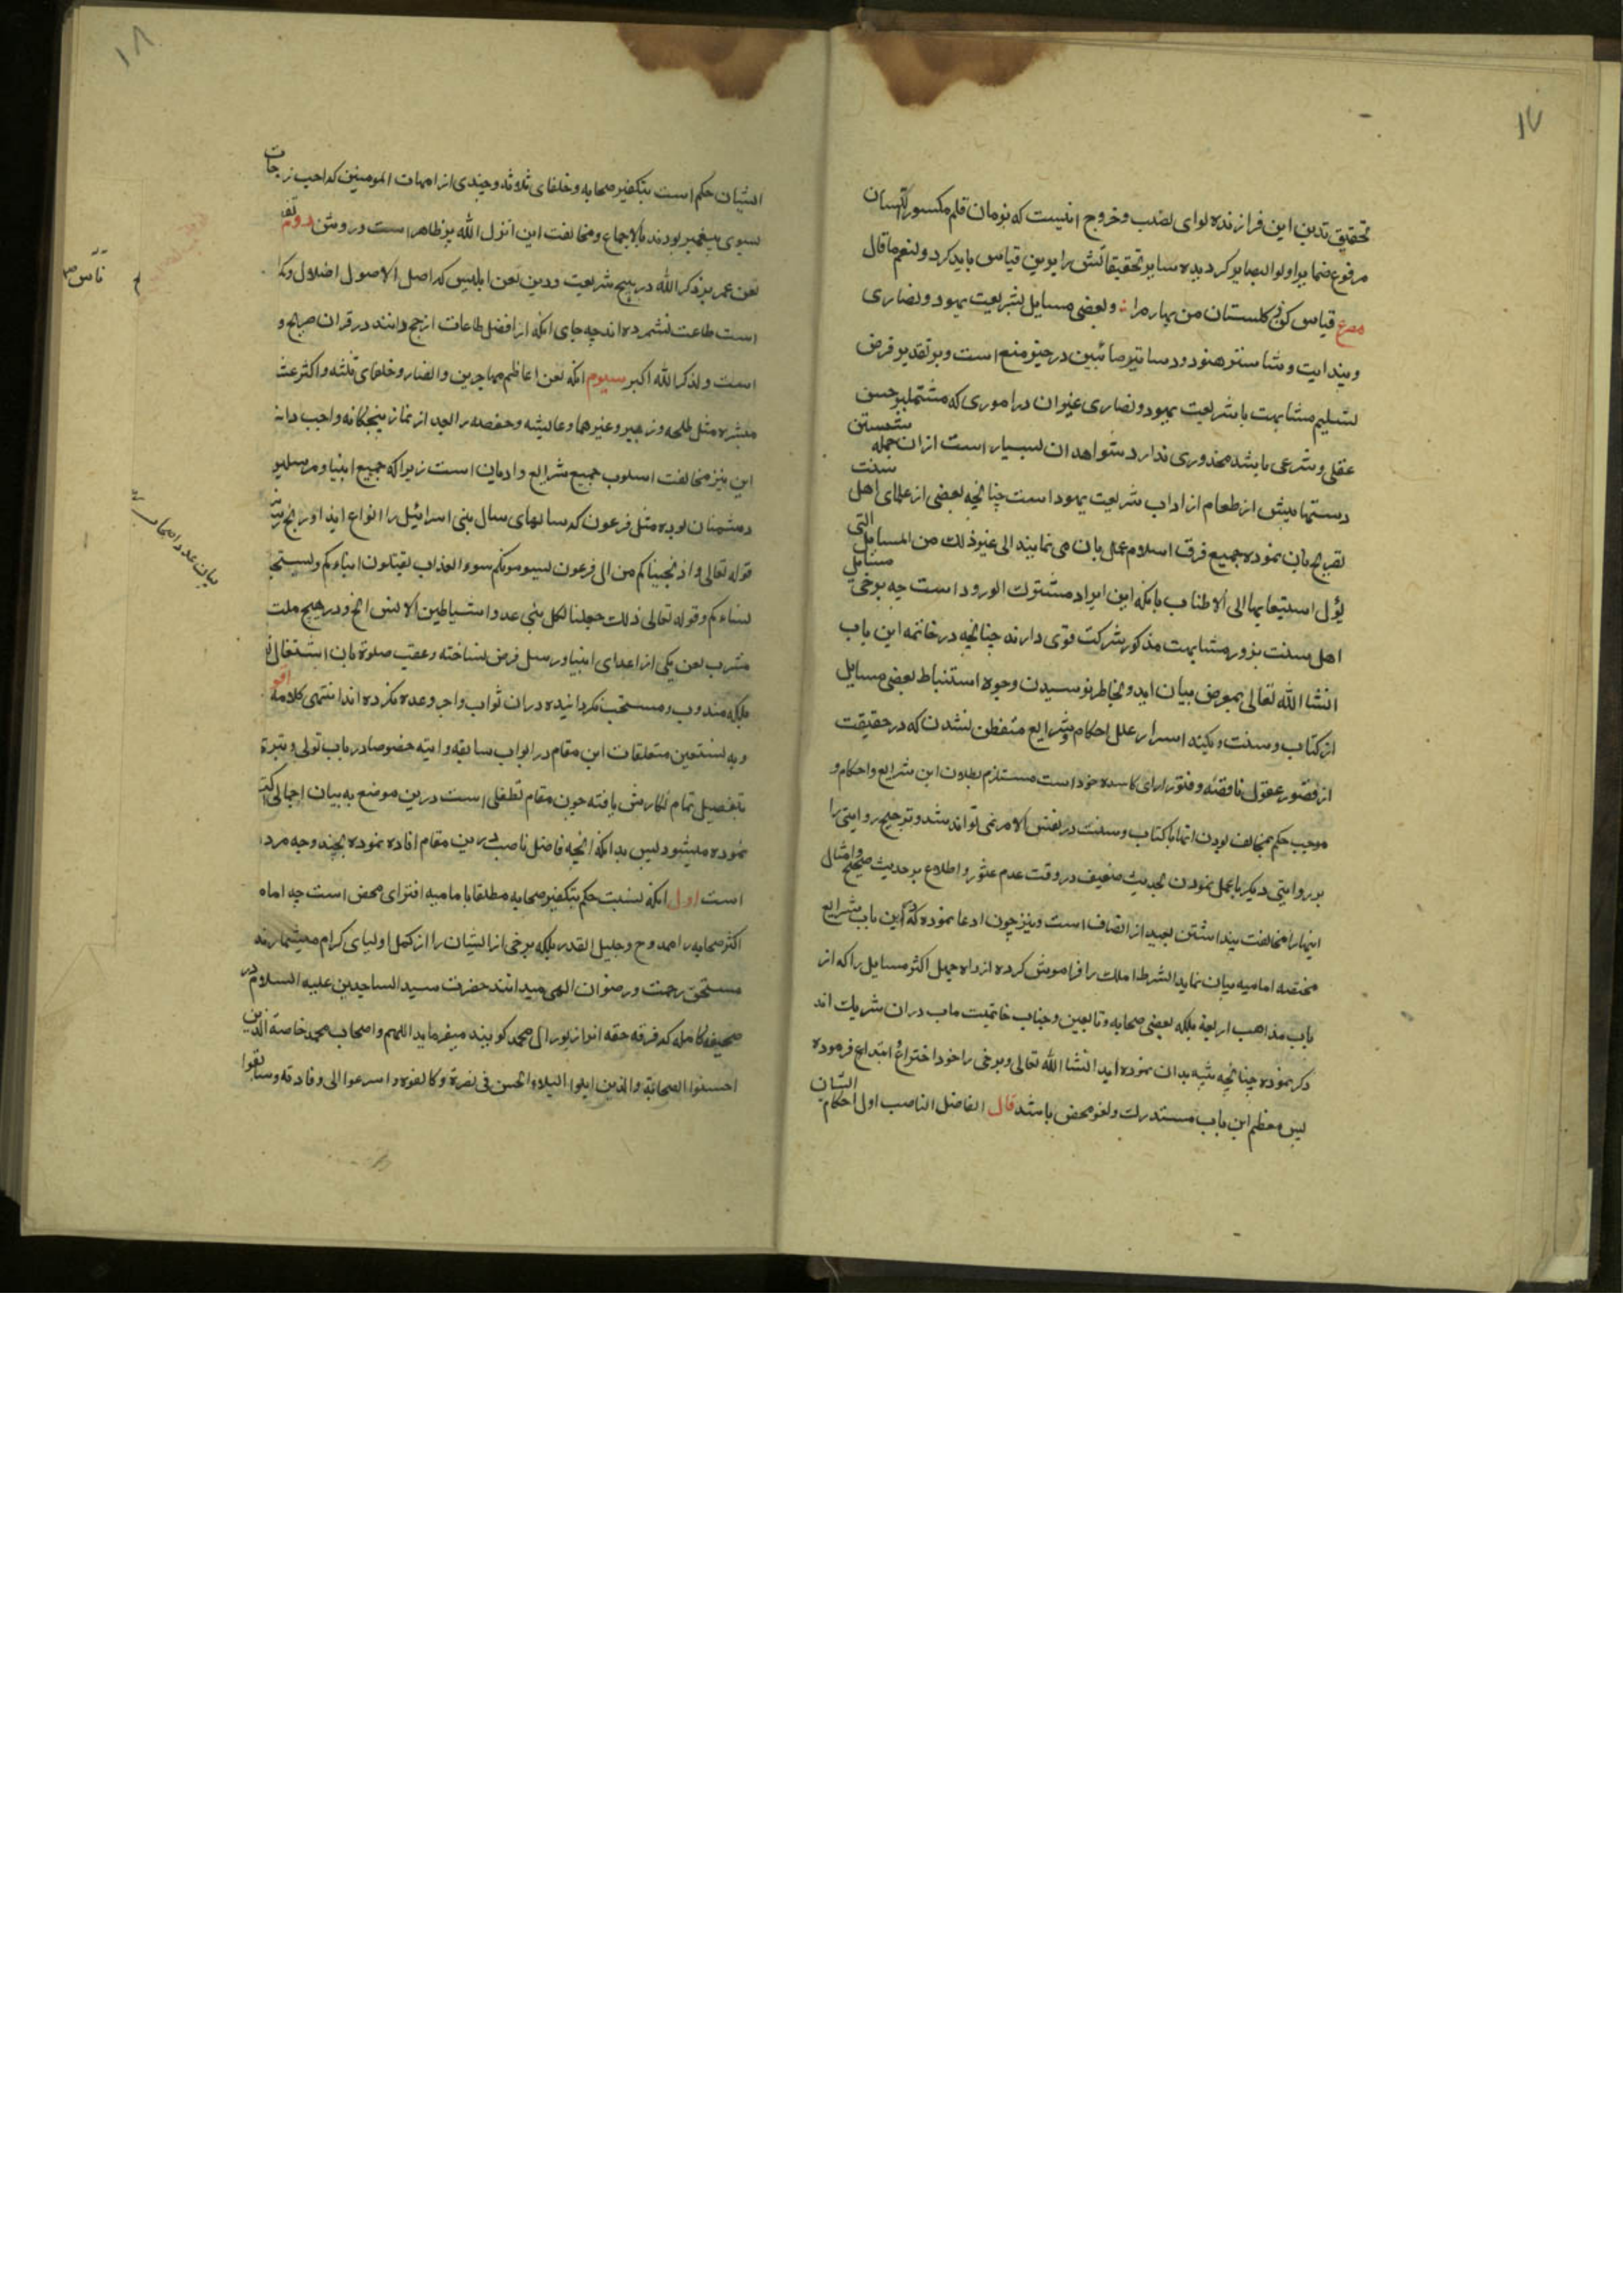 ١٧
تحقیق تدین این فرازنده لوای نصب و خروج انیست که بزمان قلم مکسور اللسان
مرفوع ضمایر اولوا البصایر کردیده سایر تحقیقاتش را برین قیاس باید کرد و لنعم ما قال
مصرع قیاس کن ز کلستان من بهار مرا و بعضی مسایل بشریعت یهود و نصاری
و بیدایت و شاستر هنود و دساتیر صائبین در حیز منع است و بر تقدیر فرض
تسلیم مشابهت با شریعت یهود و نصاری و غیر ان در اموری که مشتمل بر حسن
عقلی و شرعی باشد محذوری ندارد شواهد ان بسیار است از ان جمله شستن
دستها پیش از طعام از اداب شریعت یهود است چنانچه بعضی از علمای اهل سنت
تصریح بان نموده جمیع فرق اسلام عمل بان می نمایند الی غیر ذلک من المسایل التی
یؤل استیعابها الی الاطناب با انکه این ایراد مشترک الورود است چه برخی مسایل
اهل سنت بزور مشابهت مذکور شرکت قوی دارند چنانچه در خاتمه این باب
انشا الله تعالی بمعرض بیان اید و بخاطر نرسیدن وجوه استنباط بعضی مسایل
از کتاب و سنت و بکنه اسرار علل احکام و شرایع متفطن نشدن که در حقیقت
از قصور عقول ناقصه و فتور ارای کاسده خود است مستلزم بطلان این شرایع و احکام و
موجب حکم بمخالف بودن انها با کتاب و سنت در نفس الامر نمی تواند شد و ترجیح روایتی را
بر روایتی دیکر یا عمل نمودن بحدیث ضعیف در وقت عدم عثور و اطلاع بر حدیث صحیح و امثال
اینها را مخالفت پنداشتن بعید از انصاف است و نیز چون ادعا نموده که در این باب شرایع
مختصه امامیه بیان نماید الشرط املک را فراموش کرده از راه جهل اکثر مسایل را که از
باب مذاهب اربعة بلکه بعضی صحابه و تابعین و جناب خاتمیت ماب دران شریک اند
ذکر نموده چنانچه تنبیه بدان نموده اید انشا الله تعالی و برخی را خود اختراع و ابتداع فرموده
پس معظم این باب مستدرک و لغو محض باشد قال الفاضل الناصب اول احکام ایشان
١٨
ایشان حکم است بتکفیر صحابه و خلفای ثلاثه و چندی از امهات المومنین که احب زوجات
بسوی پیغمبر بودند بالاجماع و مخالفت این انزل الله پر ظاهر است و روشن دوم تفضیل
لعن عمر بر ذکر الله در هیچ شریعت و دین لعن ابلیس که اصل الاصول اضلال و کفر
است طاعت نشمرده اند چه جای انکه از افضل طاعات ارجح دانند در قران صریح و
است و لذکر الله اکبر سیوم انکه لعن اعاظم مهاجرین و انصار و خلفای ثلثه و اکثر عشر
مبشره مثل طلحه و زبیر و غیرهما و عایشه و حفصه را بعد از نماز پنجکانه واجب دانند
این نیز مخالفت اسلوب جمیع شرایع و ادیان است زیرا که جمیع انبیا و مرسلین
دشمنان بوده مثل فرعون که سالهای سال بنی اسرائیل را انواع ایذا و رنج
قوله تعالی و اذ نجیناکم من ال فرعون یسومونکم سوء العذاب یقتلون ابناءکم و یستحیون
نساءکم و قوله تعالی ذلک جعلنا لکل نبی عدوا شیاطین الانس الخ و در هیچ ملت
مشرب لعن یکی از اعدای انبیا و رسل فرض نساخته و عقب صلوة بان اشتغال
بلکه مندوب و مستحب نکردانیده در ان ثواب و اجر وعده نکرده اند انتهی کلامه اقول
و به نستعین متعلقات این مقام در ابواب سابقه و اتیه خصوصا در باب تولی و تبرا
بتفصیل تمام نکارش یافته چون مقام تطفلی است درین موضع به بیان اجمالی اکتفا
نموده میشود پس بدانکه انچه فاضل ناصب درین مقام افاده نموده بچند وجه مردود
است اول انکه نسبت حکم بتکفیر صحابه مطلقا بامامیه افترای محض است چه امامیه
اکثر صحابه را ممدوح و جلیل القدر بلکه برخی از ایشان را از کمل اولیای کرام میشمارند
مستحق رحمت و رضوان الهی میدانند حضرت سید الساجدین علیه السلام در
صحیفه کامله که فرقه حقه انرا زبور ال محمد کویند میفرماید اللهم و اصحاب محمد خاصة الذین
احسنوا الصحابة و الذین ابلوا البلاء الحسن فی نصرة و کانفوه و اسرعوا الی وفادته و سابقوا
بیان عدد اصحاب